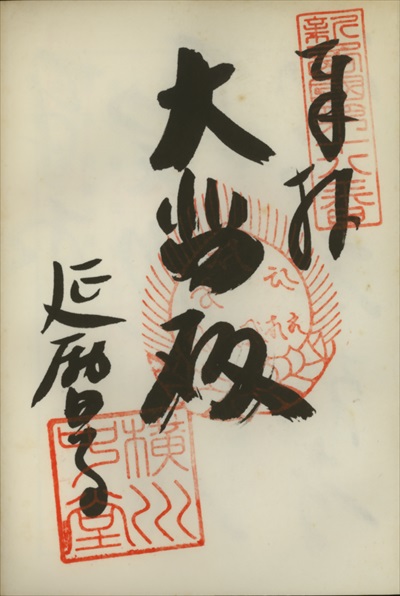 新西國第十八番
奉拝
大悲殿
延暦寺
横川
中堂